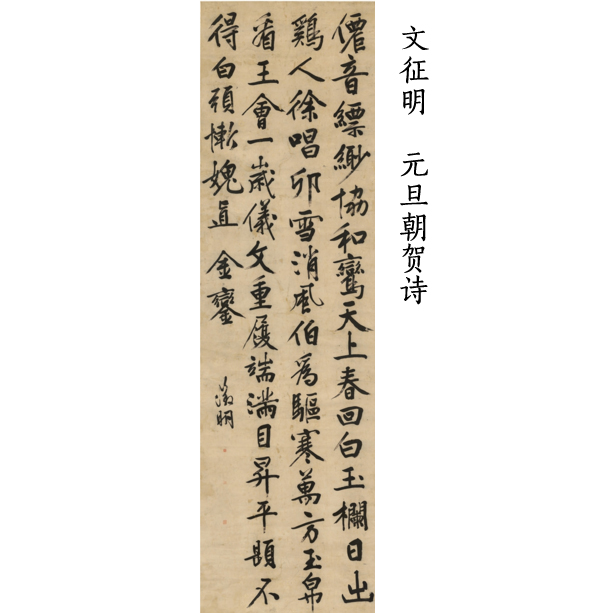 文征明　元旦朝贺诗
僊音縹緲協和鸞天上春回白玉欄日出
鷄人徐唱卯雪消風伯爲驅寒萬方玉帛
看王會一歲儀文重履端滿目昇平題不
得白頭慚媿直金鑾
徵明